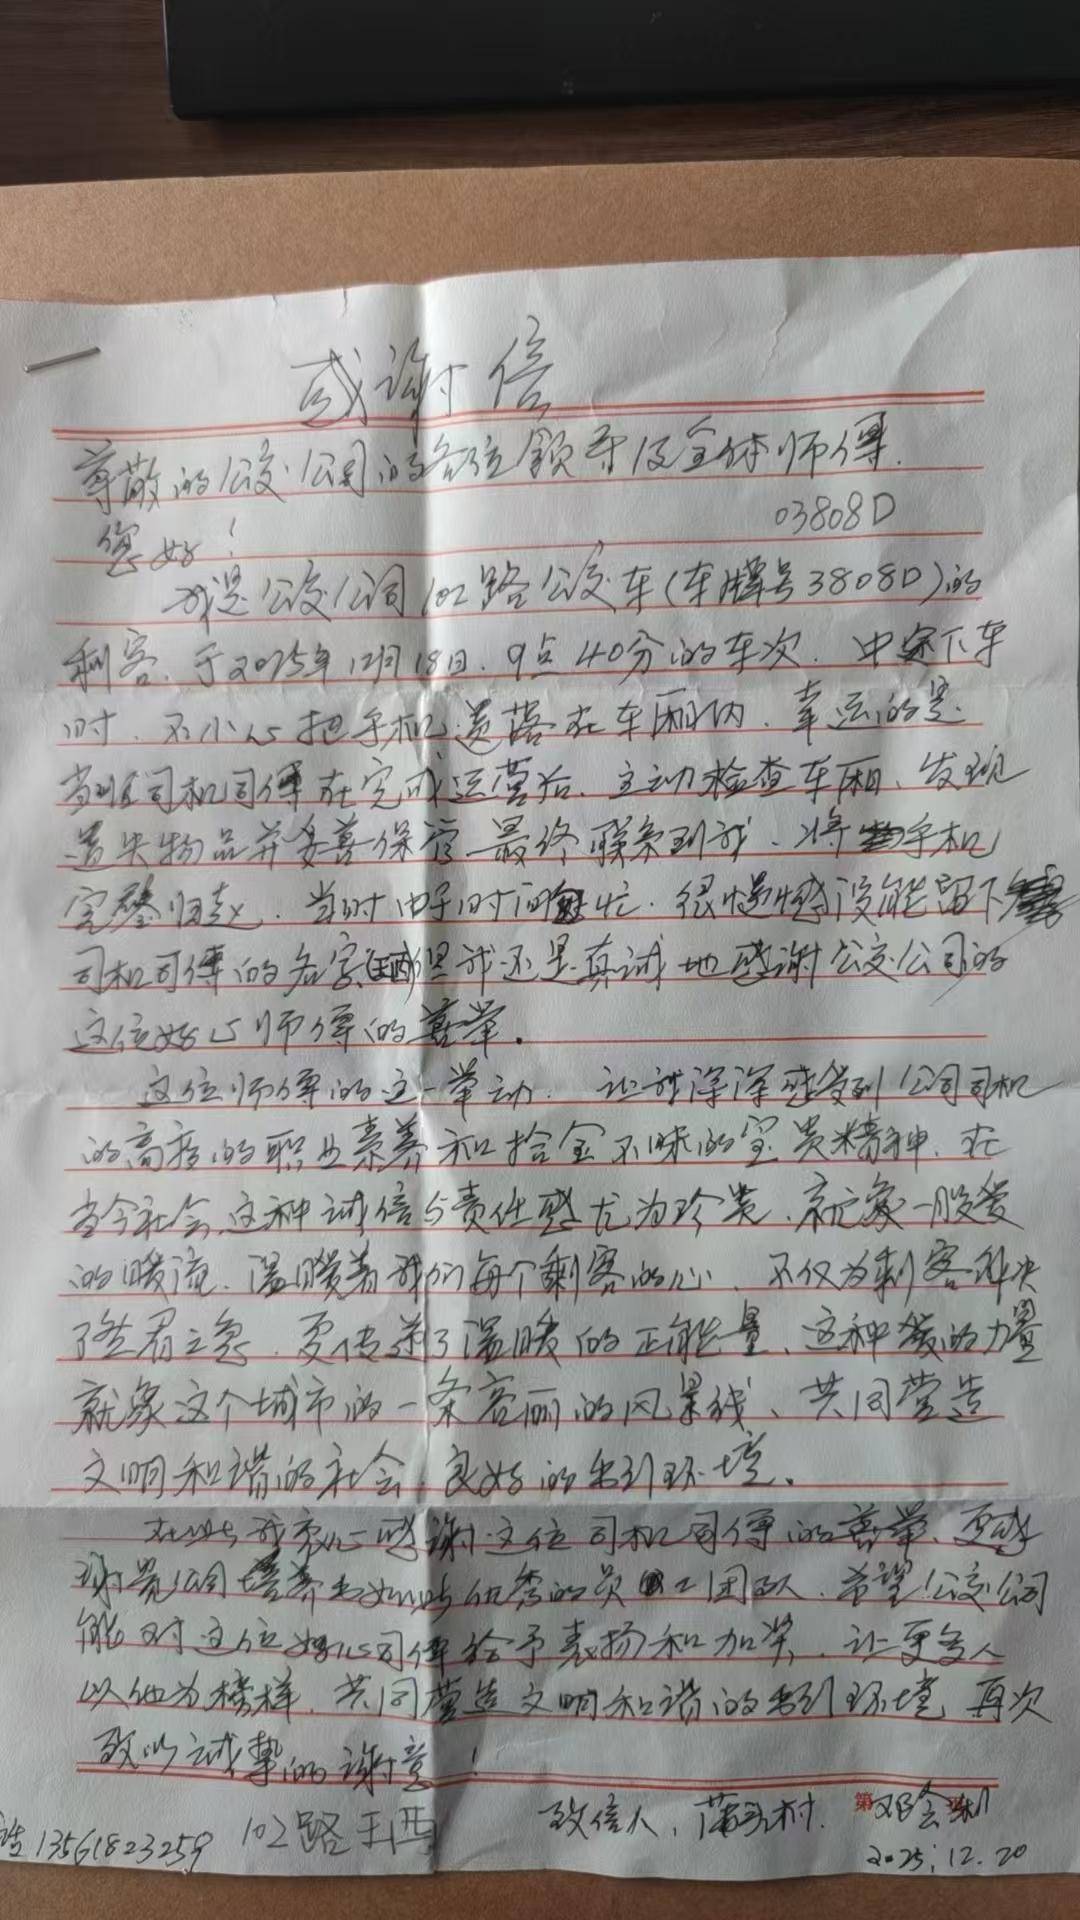 感谢信
尊敬的公交公司的各位领导及全体师傅.
03808D
您好!
我是公交公司102路公交车(车牌号3808D)的
剩客.于2025年12月18日.9点40分的车次.中途下车
时.不小心把手机遗落在车厢内.幸运的是
当时司机司傅在完成运营后.主动检查车厢、发现
遗失物品并妥善保管.最终联系到我、将手机
完整归还.当时由于时间忙.很遗憾没能留下
司机司傅的名字.(王西)但我还是真诚地感谢公交公司的
这位好心师傅的善举.
这位师傅的这一举动.让我深深感受到公司司机
的高度的职业素养和拾金不昧的宝贵精神.在
当今社会这种诚信与责任感尤为珍贵、就象一股爱
的暖流.温暖着我们每个剩客的心、不仅为剩客解决
了燃眉之急.更传递了温暖的正能量、这种爱的力量
就象这个城市的一条亮丽的风景线、共同营造
文明和谐的社会.良好的出行环境.
在此我衷心感谢这位司机司傅的善举、更感
谢贵公司培养出如此优秀的员工团队.希望公交公司
能对这位好心司傅给予表扬和加奖、让更多人
以他为榜样.共同营造文明和谐的出行环境.再次
致以诚挚的谢意!
致信人、蒲头村.邓会利
话13561823259 102路王西
2025.12.20